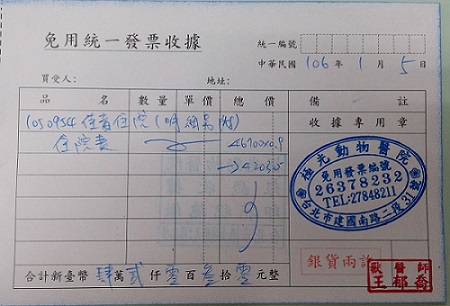 免用統一發票收據
統一編號
中華民國 106 年 1 月 5 日
買受人： 地址：
品名 數量 單價 總價 備註
1050954 住院(明細
收據專用章
住院費 46700×0.9
→42030
極光動物醫院
免用發票編號
26378232
TEL:27848211
台北市建國南路二段31號
銀貨兩訖
獸醫師
王郁
合計新臺幣 肆萬 貳仟 零百 叁拾 零元整